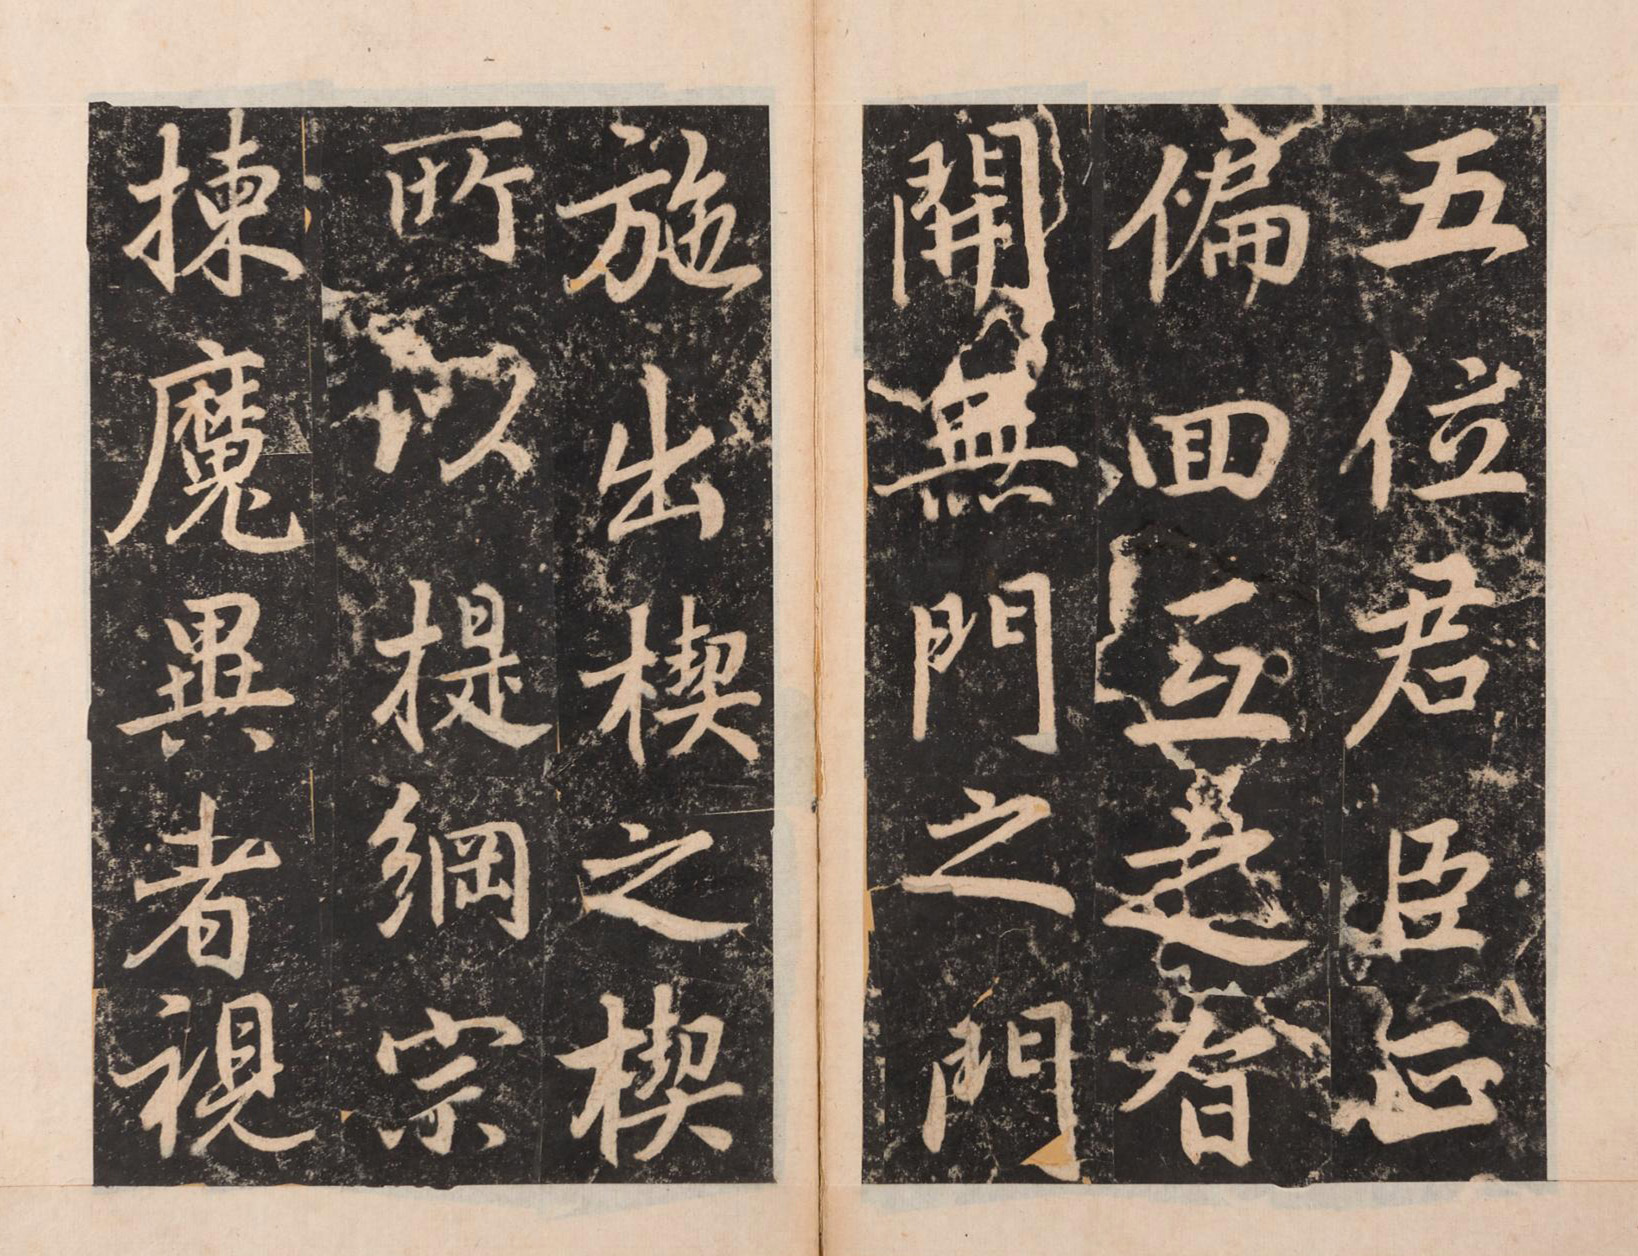 五位君臣正
偏回互
開無門之門
施出楔之楔
所以提綱宗
揀魔異者視